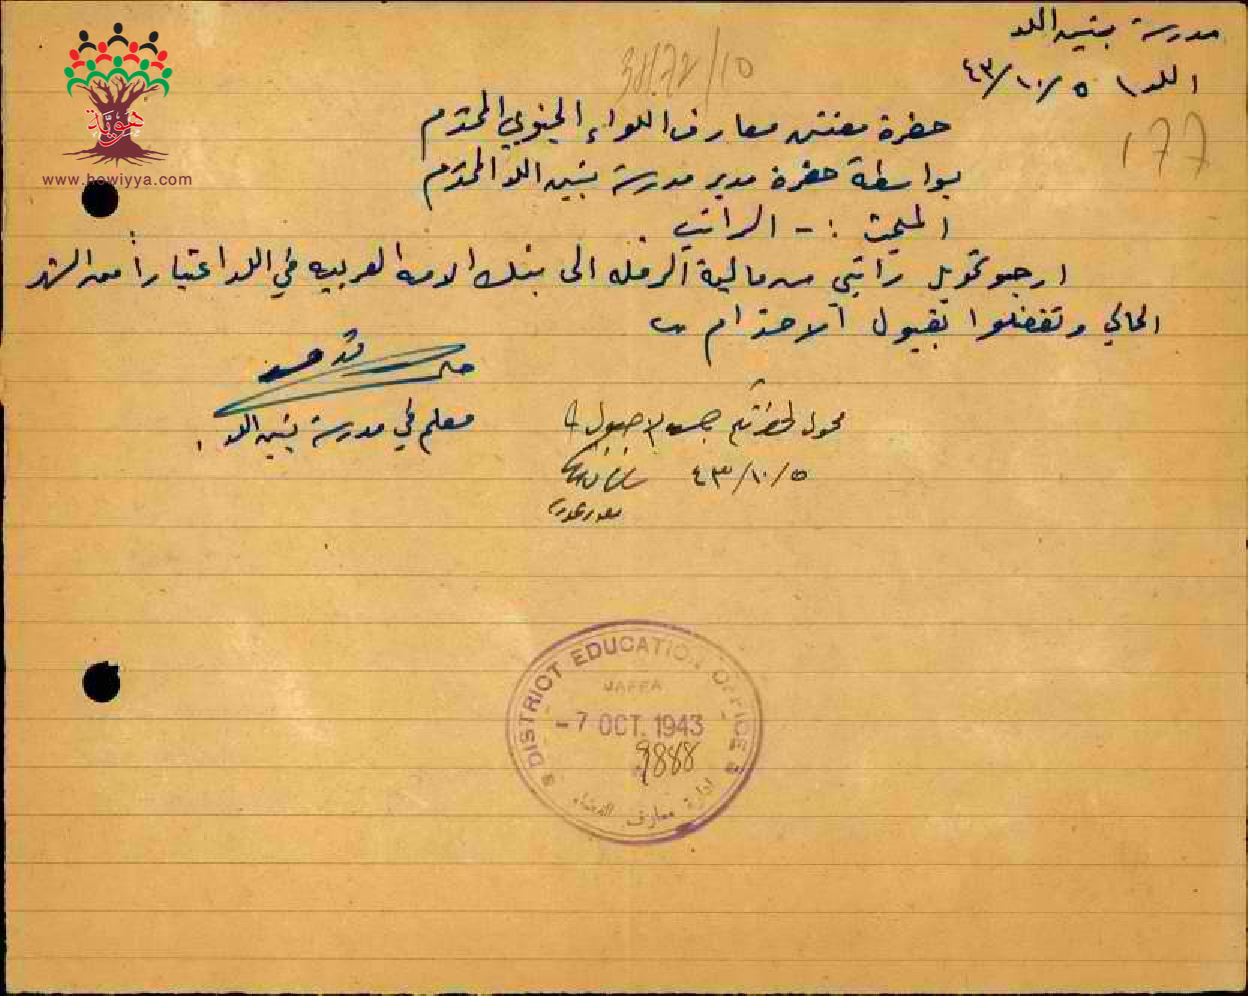 مدرسة بنين اللد
اللد ١ ٥/١٠/٤٣
3/72/10
177
حضرة مفتش معارف اللواء الجنوبي المحترم
بواسطة حضرة مدير مدرسة بنين اللد المحترم
المبحث :- الراتب
ارجو تحويل راتبي من مالية الرمله الى بنك الامه العربيه في اللد اعتباراً من الشهر
الحالي وتفضلوا بقبول الاحترام
معلم في مدرسة بنين اللد
محول لحضرتكم
٥/١٠/٤٣
هوية
www.howiyya.com
DISTRICT EDUCATION OFFICE
JAFFA
-7 OCT. 1943
9888
ادارة معارف القضاء